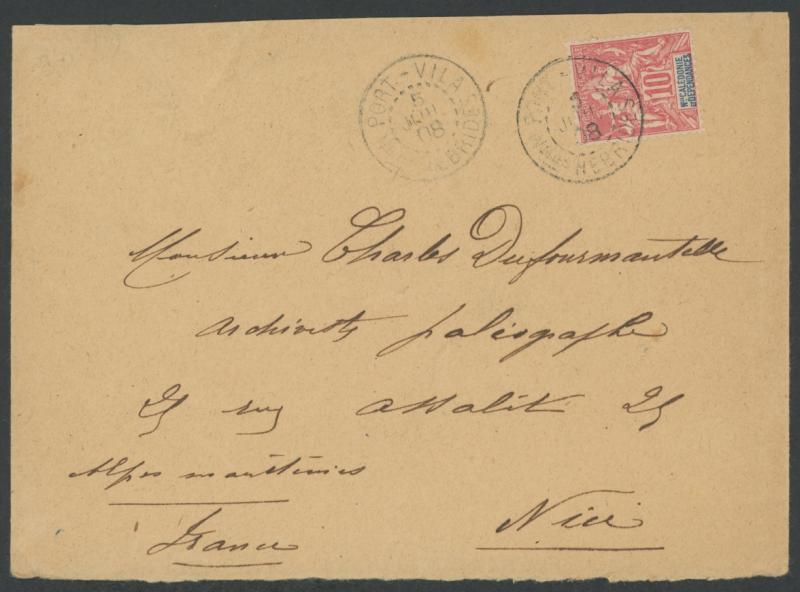 PORT-VILA
5
JUIL
08
HEBRIDES
PORT-VILA
5
JUIL
08
HEBRIDES
10
Nlle CALÉDONIE
ET DÉPENDANCES
Monsieur Charles Dufourmantelle
Archiviste paléographe
25 rue Assalit 25
Alpes maritimes
Nice
France